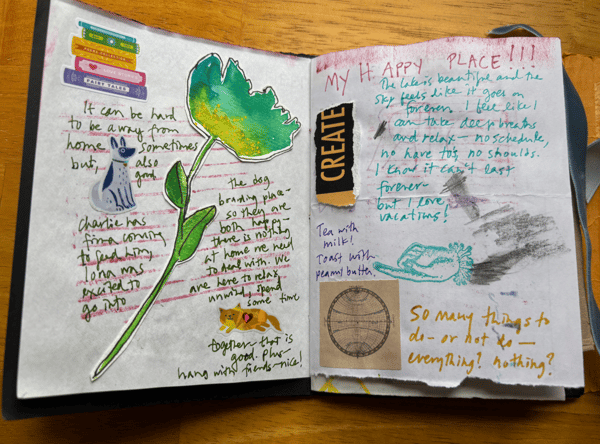 FAIRY TALES
It can be hard
to be away from
home sometimes
but, also
good
Charlie has
Fiona coming
to feed him,
Iona was
excited to
go into
the dog
boarding place -
so they are
both happy -
there is nothing
at home we need
to deal with. We
are here to relax,
unwind, spend
some time
together - that is
good. Plus -
hang with friends - nice!
MY HAPPY PLACE!!!
The lake is beautiful and the
sky feels like it goes on
forever. I feel like I
can take deep breaths
and relax - no schedule,
no have tos, no shoulds.
I know it can't last
forever -
but I love
vacations!
CREATE
Tea with
milk!
Toast with
peanut butter.
So many things to
do - or not do -
everything? nothing?